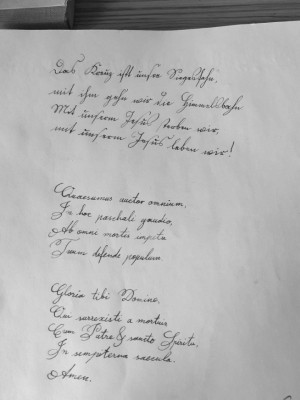 Das Kreuz ist unsre Siegesfahn,
mit ihm gehn wir die Himmelsbahn
Mit unserm Jesus sterben wir,
mit unserm Jesus leben wir!
Quaesumus auctor omnium,
In hoc paschali gaudio,
Ab omni mortis impetu
Tuum defende populum.
Gloria tibi Domine,
Qui surrexisti a mortuis
Cum Patre & sancto Spiritu,
In sempiterna saecula.
Amen.